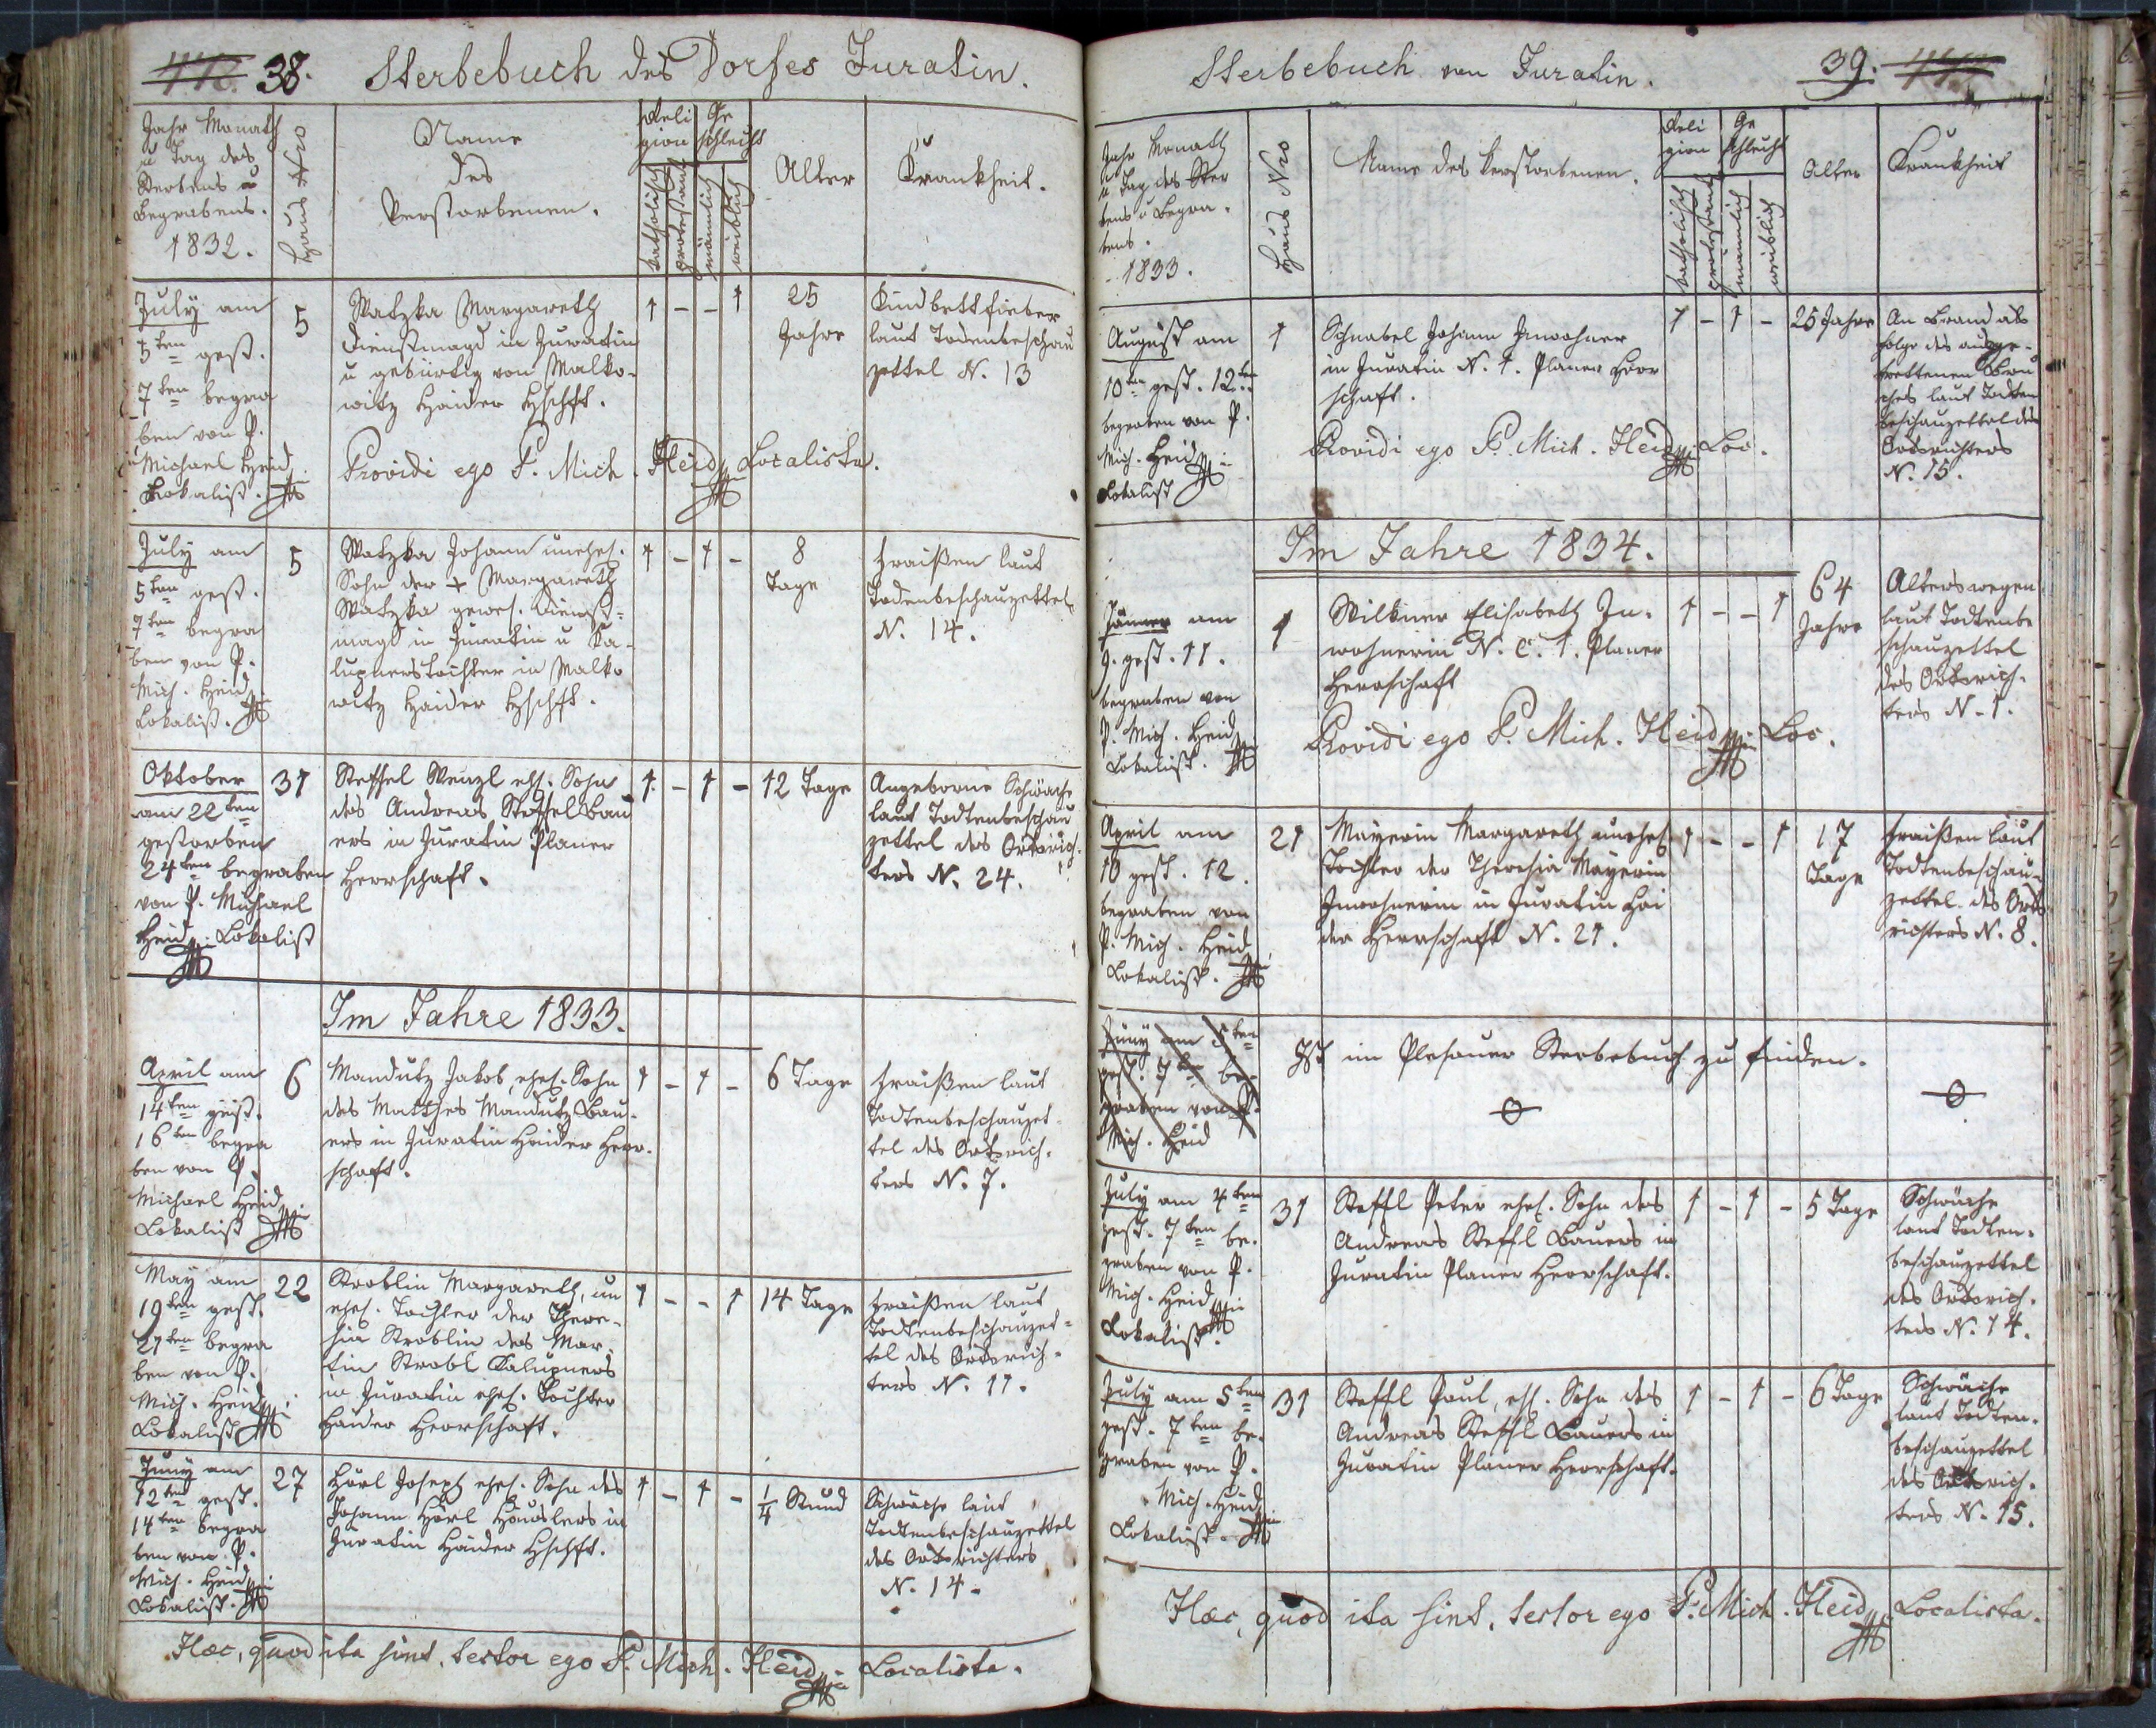 38. Sterbebuch des Dorfes Juratin.
Jahr Monath
u Tag des
Sterbens u
Begrabens.
1832.
Haus Nro
Name
des
Verstorbenen.
Reli
gion
katholisch
protestant
Ge
schlecht
männlich
weiblich
Alter
Krankheit.
July am
5ten gest.
7ten begra
ben von P.
Michael Heid
Lokalist.
5
Watzka Margareth
Dienstmagd in Juratin
u gebürtig von Malko-
witz Haider Hschft.
Providi ego P. Mich. Heid mpia Localista.
1 - - 1
25
Jahre
Kindbettfieber
laut Todenbeschau
zettel N. 13
July am
5ten gest.
7ten begra
ben von P.
Mich. Heid
Lokalist.
5
Watzka Johann unehel.
Sohn der + Margareth
Watzka gewes. Dienst-
magd in Juratin u Ka-
lupnerstochter in Malko
witz Haider Hschft.
1 - 1 -
8
Tage
Fraißen laut
Todenbeschauzettel
N. 14.
Oktober
am 22ten
gestorben
24ten begraben
von P. Michael
Heid Lokalist
31
Steffel Wenzl ehl. Sohn
des Andreas Steffel Bau
ers in Juratin Planer
Herrschaft.
1 - 1 -
12 Tage
Angeborne Schwäche
laut Todtenbeschau
zettel des Ortsrich-
ters N. 24.
Im Jahre 1833.
April am
14ten gest.
16ten begra
ben von P.
Michael Heid
Lokalist
6
Mandutz Jakob, ehel. Sohn
des Matthes Mandutz Bau-
ers in Juratin Haider Herr-
schaft.
1 - 1 -
6 Tage
Fraißen laut
Todtenbeschauzet-
tel des Ortsrich-
ters N. 7.
May am
19ten gest.
21ten begra
ben von P.
Mich. Heid
Lokalist
22
Stroblin Margareth, un
ehel. Tochter der There-
sia Stroblin des Mar-
tin Strobl Kalupners
in Juratin ehel. Tochter
Haider Herrschaft.
1 - - 1
14 Tage
Fraißen laut
Todtenbeschauzet-
tel des Ortsrich-
ters N. 11.
Juny am
12ten gest.
14ten begra
ben von P.
Mich. Heid
Lokalist.
27
Hörl Joseph ehel. Sohn des
Johann Hörl Häuslers in
Juratin Haider Hschft.
1 - 1 -
1/4 Stund
Schwäche laut
Todtenbeschauzettel
des Ortsrichters
N. 14.
Hæc, quod ita sint, testor ego P. Mich. Heid mpia Localista.
Sterbebuch von Juratin. 39.
Jahr Monath
u Tag des Ster
bens u Begra-
bens.
1833.
Haus Nro
Name des Verstorbenen.
Reli
gion
katholisch
protestant
Ge
schlecht
männlich
weiblich
Alter
Krankheit
August am
10ten gest. 12ten
begraben von P.
Mich. Heid
Lokalist
1
Schnabel Johann Inwohner
in Juratin N. 1. Planer Herr
schaft.
Providi ego P. Mich. Heid mpia Loc.
1 - 1 -
25 Jahre
An Brand als
Folge des ausge-
trettenen Bru
ches laut Todten
beschauzettel des
Ortsrichters
N. 15.
Im Jahre 1834.
Jänner am
9. gest. 11.
begraben von
P. Mich. Heid
Lokalist.
1
Wilkner Elisabeth In-
wohnerin N. C. 1. Planer
Herrschaft
Providi ego P. Mich. Heid mpia Loc.
1 - - 1
64
Jahre
Alters wegen
laut Todtenbe
schauzettel
des Ortsrich-
ters N. 1.
April am
10 gest. 12.
begraben von
P. Mich. Heid
Lokalist.
21
Mayerin Margareth unehel.
Tochter der Theresia Mayerin
Inwohnerin in Juratin Hai
der Herrschaft N. 21.
1 - - 1
17
Tage
Fraißen laut
Todtenbeschau-
zettel des Orts
richters N. 8.
Juny am 5ten
gest. 7ten be-
graben von P.
Mich. Heid
Ist im Plesauer Sterbebuch zu finden.
July am 4ten
gest. 7ten be-
graben von P.
Mich. Heid
Lokalist.
31
Steffl Peter ehel. Sohn des
Andreas Steffl Bauers in
Juratin Planer Herrschaft.
1 - 1 -
5 Tage
Schwäche
laut Todten-
beschauzettel
des Ortsrich-
ters N. 14.
July am 5ten
gest. 7ten be-
graben von P.
Mich. Heid
Lokalist.
31
Steffl Paul, ehl. Sohn des
Andreas Steffl Bauers in
Juratin Planer Herrschaft.
1 - 1 -
6 Tage
Schwäche
laut Todten-
beschauzettel
des Ortsrich-
ters N. 15.
Hæc, quod ita sint, testor ego P. Mich. Heid mpia Localista.